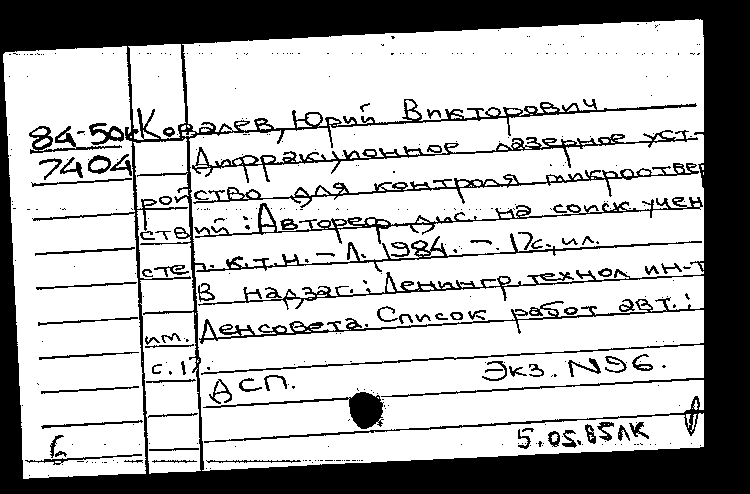 84-50к Ковалев, Юрий Викторович.
7404 Дифракционное лазерное уст-
ройство для контроля микроотвер
ствий : Автореф. дис. на соиск. учен
степ. к.т.н. - Л., 1984. - 17с., ил.
В надзаг.: Ленингр. технол ин-т
им. Ленсовета. Список работ авт.:
с. 17.
ДСП. Экз. N96.
6 5.05.85ЛК